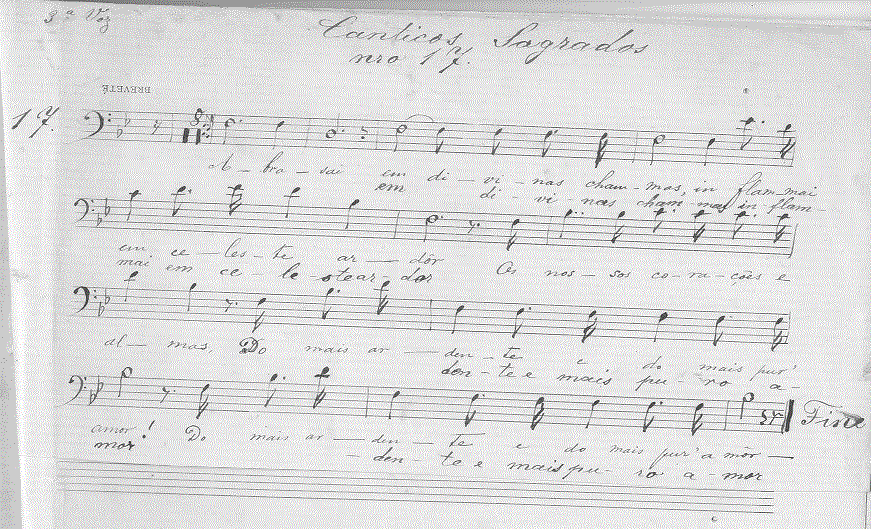 3ª Voz
Canticos Sagrados
nro 17.
BREVETÉ
17.
A - bra - sai em di - vi - nas cham - mas, in flam-mai
em di - vi - nas cham - mas in flam-
em ce - les - te ar - dôr Os nos - sos co - ra - ções e
mai em ce - le - ste ar - dor
al - mas, Do mais ar - den - te e do mais pur'
den - te e mais pu - ro a -
amor! Do mais ar - den - te e do mais pur' a môr
mor - den - te e mais pu - ro a - mor
Fine